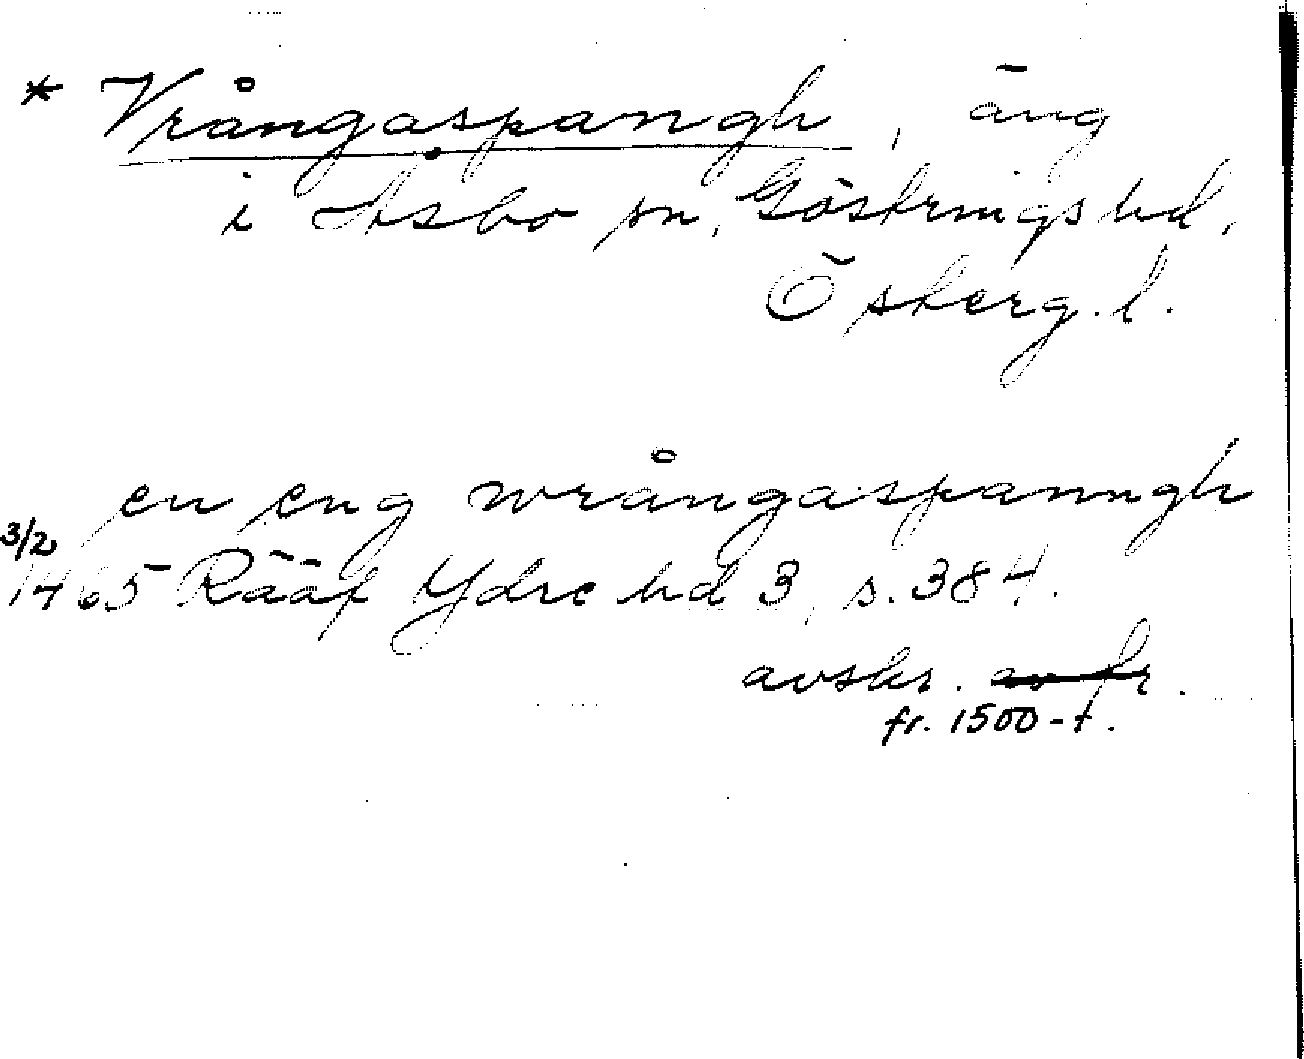 * Vrångaspangh, äng
i Åsbo sn, Göstrings hd,
Österg.l.
en eng wrångaspanngh
3/2
1465 Rääf Ydre hd 3, s. 384.
avskr. av fr.
fr. 1500-t.